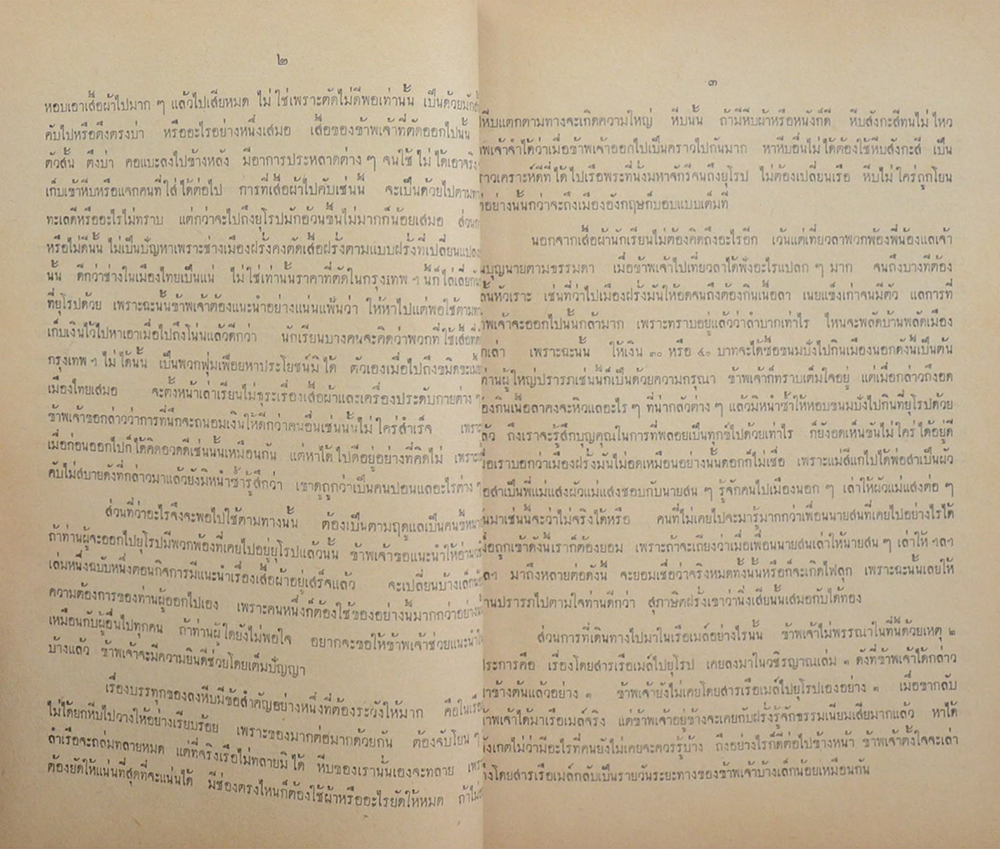 ๒
หอบเอาเสื้อผ้าไปมาก ๆ แล้วไปเสียหมด ไม่ใช่เพราะตัดไม่ดีพอเท่านั้น เป็นด้วยมัก
คับไปหรือตึงตรงบ่า หรืออะไรอย่างหนึ่งเสมอ เสื้อของข้าพเจ้าที่ตัดออกไปนั้น
ตัวสั้น ตึงบ่า คอแบะลงไปข้างหลัง มีอาการประหลาดต่าง ๆ จนใช้ไม่ได้เอาจริง
เก็บเข้าหีบหรือแจกคนที่ใส่ได้ต่อไป การที่เสื้อผ้าไปคับเช่นนี้ จะเป็นด้วยไปตามทาง
ทะเลดีหรืออะไรไม่ทราบ แต่กว่าจะไปถึงยุโรปมักอ้วนขึ้นไม่มากก็น้อยเสมอ ส่วน
หรือไม่ดีนั้น ไม่เป็นปัญหาเพราะช่างเมืองฝรั่งคงตัดเสื้อฝรั่งตามแบบฝรั่งที่เปลี่ยนแปลง
นั้น ดีกว่าช่างในเมืองไทยเป็นแน่ ไม่ใช่เท่านั้นราคาที่ตัดในกรุงเทพ ฯ นี้ก็ไล่เลี่ยกัน
ที่ยุโรปด้วย เพราะฉะนั้นข้าพเจ้าต้องแนะนำอย่างแน่นแฟ้นว่า ให้หาไปแต่พอใช้ตามทาง
เก็บเงินไว้ไปหาเอาเมื่อไปถึงโน่นแล้วดีกว่า นักเรียนบางคนจะคิดว่าพวกที่ใช้เสื้อที่ตัด
กรุงเทพ ฯ ไม่ได้นั้น เป็นพวกฟุ่มเฟือยหาประโยชน์มิได้ ตัวเองเมื่อไปถึงขมิดขะเมี้ยน
เมืองไทยเสมอ จะตั้งหน้าเล่าเรียนไม่ธุระเรื่องเสื้อผ้าและเครื่องประดับกายต่าง ๆ
ข้าพเจ้าขอกล่าวว่าการที่นึกจะถนอมเงินให้ดีกว่าคนอื่นเช่นนั้นไม่ใคร่สำเร็จ เพราะ
เมื่อก่อนออกไปก็ได้คิดอวดดีเช่นนั้นเหมือนกัน แต่หาได้ไปดีอยู่อย่างที่คิดไม่ เพราะ
คับไม่สบายดังที่กล่าวมาแล้วยังมิหนำซ้ำรู้สึกว่า เขาดูถูกว่าเป็นคนปอนแลอะไรต่าง ๆ
ส่วนที่ว่าอะไรจึงจะพอไปใช้ตามทางนั้น ต้องเป็นตามฤดูแลเป็นคนชั้น
ถ้าท่านผู้จะออกไปยุโรปมีพวกพ้องที่เคยไปอยู่ยุโรปแล้วนั้น ข้าพเจ้าขอแนะนำให้อ่าน
เล่มหนึ่งฉบับหนึ่งตอนกิจการมีแนะนำเรื่องเสื้อผ้าอยู่เสร็จแล้ว จะเปลี่ยนบ้างเล็ก
ความต้องการของท่านผู้ออกไปเอง เพราะคนหนึ่งก็ต้องใช้ของอย่างนี้มากกว่าอย่าง
เหมือนกับผู้อื่นไปทุกคน ถ้าท่านผู้ใดยังไม่พอใจ อยากจะขอให้ข้าพเจ้าช่วยแนะนำ
บ้างแล้ว ข้าพเจ้าจะมีความยินดีช่วยโดยเต็มปัญญา
เรื่องบรรทุกของลงหีบมีข้อสำคัญอย่างหนึ่งที่ต้องระวังให้มาก คือในเรือ
ไม่ได้ยกหีบไปวางให้อย่างเรียบร้อย เพราะของมากต่อมากด้วยกัน ต้องจับโยน ๆ
ลำเรือจะถล่มทลายหมด แต่ที่จริงเรือไม่ทลายมิได้ หีบของเรานั้นเองจะทลาย เพราะ
ต้องยัดให้แน่นที่สุดที่จะแน่นได้ มีช่องตรงไหนก็ต้องใช้ผ้าหรืออะไรยัดให้หมด ถ้าไม่
๓
หีบแตกตามทางจะเกิดความใหญ่ หีบนั้น ถ้ามีหีบผ้าหรือหนังก็ดี หีบสังกะสีทนไม่ไหว
พเจ้าจำได้ว่าเมื่อข้าพเจ้าออกไปเป็นคราวไปกันมาก หาหีบอื่นไม่ได้ต้องใช้หีบสังกะสี เป็น
าวเคราะห์ดีที่ได้ไปเรือพระที่นั่งมหาจักรีจนถึงยุโรป ไม่ต้องเปลี่ยนเรือ หีบไม่ใคร่ถูกโยน
อย่างนั้นกว่าจะถึงเมืองอังกฤษก็บอบแบบเต็มที
นอกจากเสื้อผ้านักเรียนไม่ต้องคิดถึงอะไรอีก เว้นแต่เที่ยวลาพวกพ้องพี่น้องแลเจ้า
นบุญนายตามธรรมดา เมื่อข้าพเจ้าไปเที่ยวลาได้ฟังอะไรแปลก ๆ มาก จนถึงบางทีต้อง
ลั้นหัวเราะ เช่นที่ว่าไปเมืองฝรั่งมันให้อดจนถึงต้องกินเนื้อลา เนยแข็งเก่าจนมีตัว แลการที่
พเจ้าจะออกไปนั้นกล้ามาก เพราะทราบอยู่แล้วว่าลำบากเท่าไร ไหนจะพลัดบ้านพลัดเมือง
กเล่า เพราะฉะนั้น ให้เงิน ๓๐ หรือ ๔๐ บาทจะได้ซื้อขนมปังไปกินเมืองนอกดังนี้เป็นต้น
ท่านผู้ใหญ่ปรารภเช่นนี้ก็เป็นด้วยความกรุณา ข้าพเจ้าก็ทราบเต็มใจอยู่ แต่เมื่อกล่าวถึงอด
้องกินเนื้อลาคงจะหิวแลอะไร ๆ ที่น่ากลัวต่าง ๆ แล้วมิหนำซ้ำให้หอบขนมปังไปกินที่ยุโรปด้วย
ล้ว ถึงเราจะรู้สึกบุญคุณในการที่พลอยเป็นทุกข์ไปด้วยเท่าไร ก็ยังอดเห็นขันไม่ใคร่ได้อยู่ดี
มื่อเราบอกว่าเมืองฝรั่งมันไม่อดเหมือนอย่างนั้นดอกก็ไม่เชื่อ เพราะแม่สีแกไปได้พ่อสำเป็นผัว
่อสำเป็นพี่แม่แสงผัวแม่แสงชอบกับนายสน ๆ รู้จักคนไปเมืองนอก ๆ เล่าให้ผัวแม่แสงต่อ ๆ
นมาเช่นนี้จะว่าไม่จริงได้หรือ คนที่ไม่เคยไปจะมารู้มากกว่าเพื่อนนายสนที่เคยไปอย่างไรได้
มื่อถูกเข้าดังนี้เราก็ต้องยอม เพราะถ้าจะเถียงว่าเมื่อเพื่อนนายสนเล่าให้นายสน ๆ เล่าให้ ฯลฯ
ลฯ มาถึงหลายต่อดังนี้ จะยอมเชื่อว่าจริงหมดทั้งนั้นหรือก็จะเกิดไฟลุก เพราะฉะนั้นเลยให้
่านปรารภไปตามใจท่านดีกว่า สุภาษิตฝรั่งเขาว่านิ่งเสียนั้นเสมอกับได้ทอง
ส่วนการที่เดินทางไปมาในเรือเมล์อย่างไรนั้น ข้าพเจ้าไม่พรรณาในที่นี้ด้วยเหตุ ๒
ประการคือ เรื่องโดยสารเรือเมล์ไปยุโรป เคยลงมาในวชิรญาณเล่ม ๑ ดังที่ข้าพเจ้าได้กล่าว
าข้างต้นแล้วอย่าง ๑ ข้าพเจ้ายังไม่เคยโดยสารเรือเมล์ไปยุโรปเองอย่าง ๑ เมื่อขากลับ
้าพเจ้าได้มาเรือเมล์จริง แต่ข้าพเจ้าอยู่ข้างจะเคยกับฝรั่งรู้จักธรรมเนียมเสียมากแล้ว หาได้
ังเกตไม่ว่ามีอะไรที่คนยังไม่เคยจะควรรู้บ้าง ถึงอย่างไรก็ดีต่อไปข้างหน้า ข้าพเจ้าตั้งใจจะเล่า
ึงโดยสารเรือเมล์กลับเป็นรายวันระยะทางของข้าพเจ้าบ้างเล็กน้อยเหมือนกัน